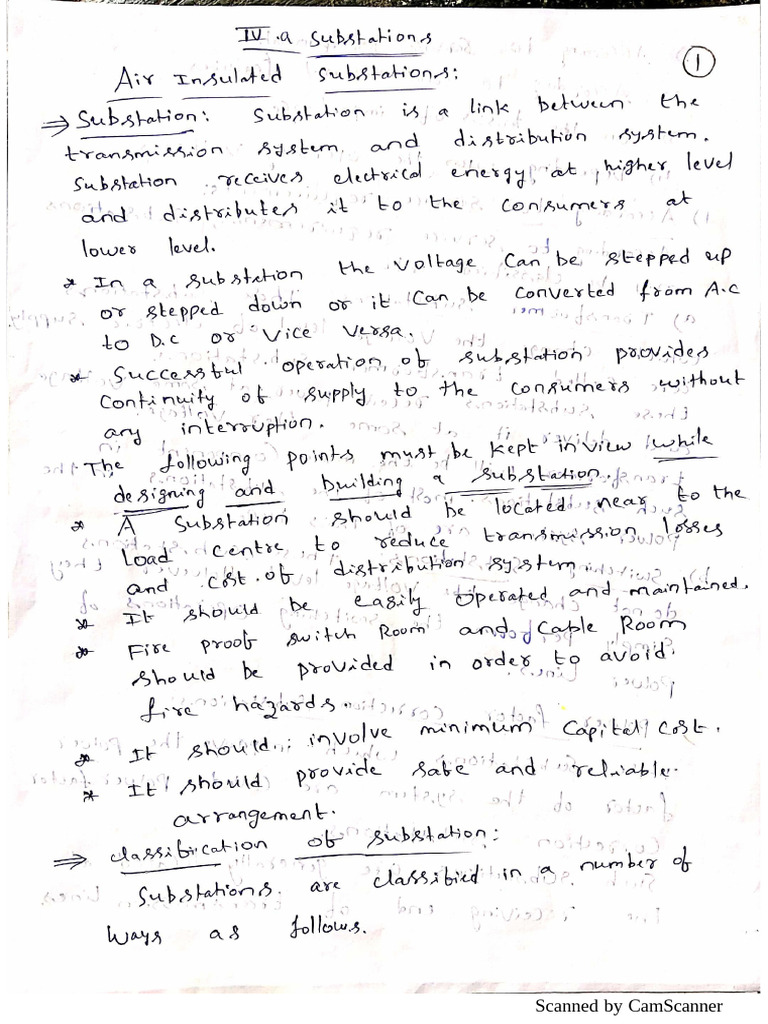 IV.a Substations
1
Air Insulated Substations:
⇒ Substation: Substation is a link between the
transmission system and distribution system.
Substation receives electrical energy at higher level
and distributes it to the consumers at
lower level.
* In a substation the voltage can be stepped up
or stepped down or it can be converted from A.c
to D.c or vice versa.
* Successful operation of substation provides
continuity of supply to the consumers without
any interruption.
The following points must be kept in view while
designing and building a substation.
* A Substation should be located near to the
Load centre to reduce transmission losses
and cost of distribution system
* It should be easily operated and maintained.
* Fire proof switch Room and Cable Room
should be provided in order to avoid
fire hazards.
* It should involve minimum capital cost.
* It should provide safe and reliable
arrangement.
⇒ classification of substation:
Substations are classified in a number of
ways as follows.
Scanned by CamScanner